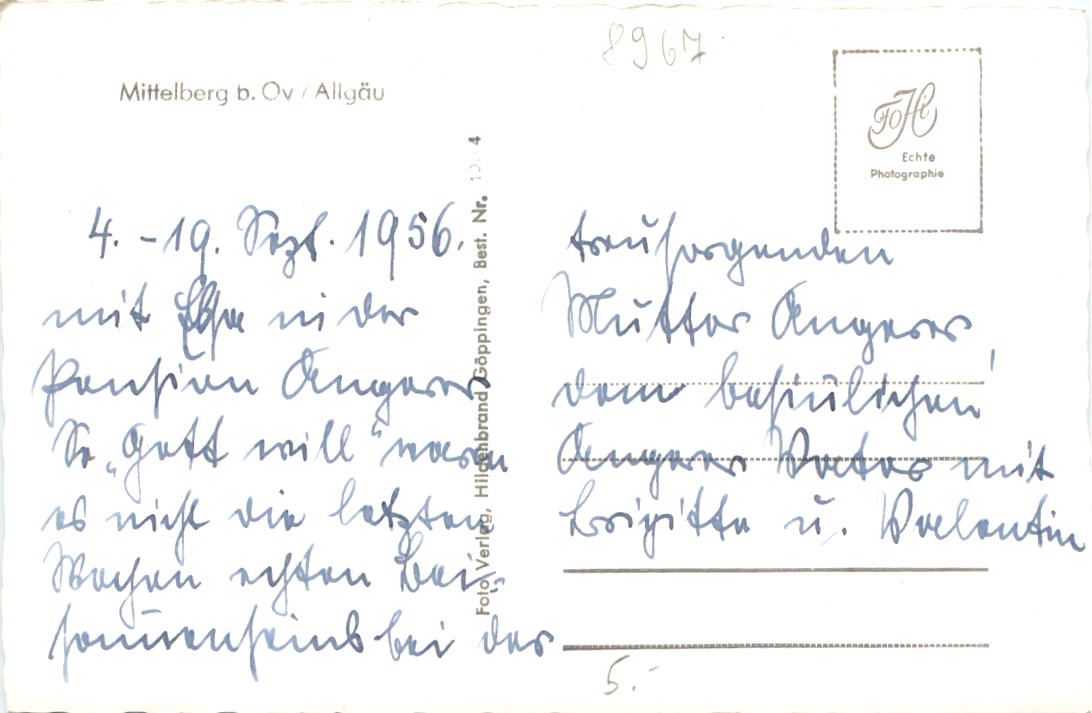 8967
Mittelberg b. Oy / Allgäu
FoHi
Echte
Photographie
Foto Verlag, Hildenbrand, Göppingen, Best. Nr. 4
4. - 19. Sept. 1956.
mit in der
Pension Angerer
So „Gott will" waren
es nicht die letzten
Wochen echten Bei-
sammenseins bei der
treusorgenden
Mutter Angerer,
dem beschaulichen
Angerer Vater mit
Brigitte u. Valentin
5.-